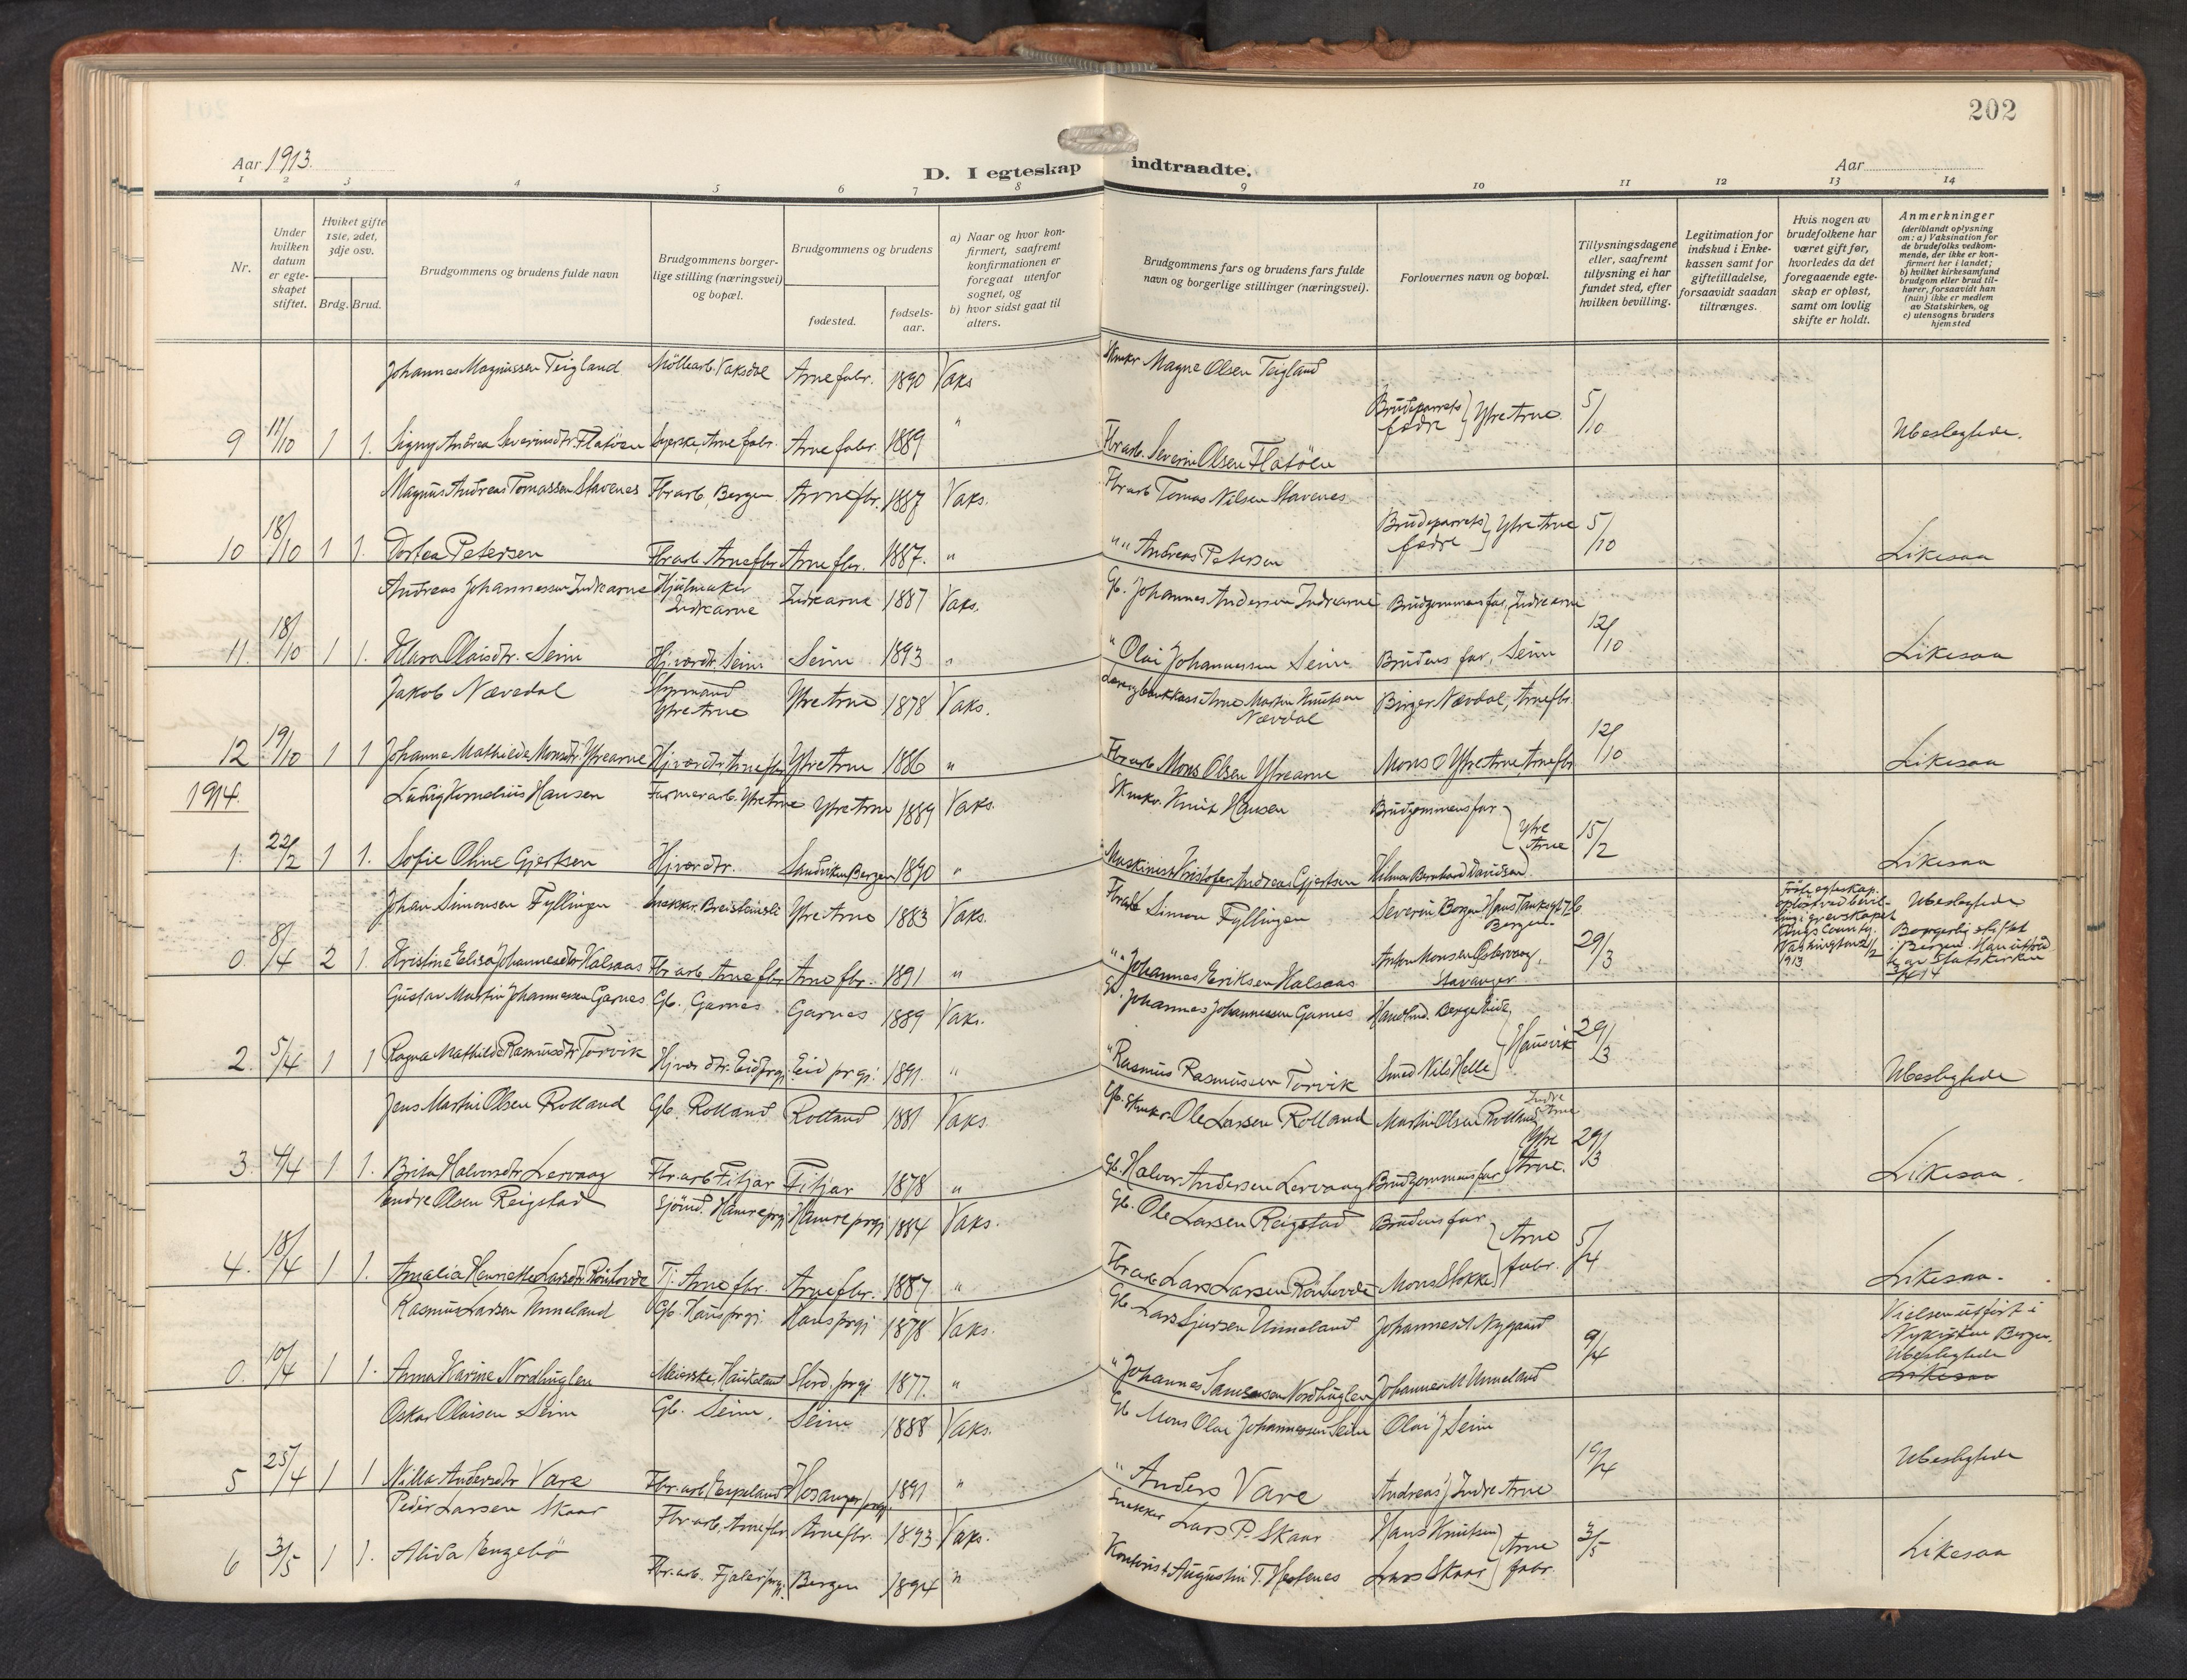 202
Aar 1913.
D. I egteskap indtraadte.
Aar
1 2 3 4 5 6 7 8 9 10 11 12 13 14
Nr.
Under hvilken datum er egteskapet stiftet.
Hviket gifte 1ste, 2det, 3dje osv.
Brdg. Brud.
Brudgommens og brudens fulde navn
Brudgommens borgerlige stilling (næringsvei) og bopæl.
Brudgommens og brudens
fødested.
fødselsaar.
a) Naar og hvor konfirmert, saafremt konfirmationen er foregaat utenfor sognet, og
b) hvor sidst gaat til alters.
Brudgommens fars og brudens fars fulde navn og borgerlige stillinger (næringsvei).
Forlovernes navn og bopæl.
Tillysningsdagene eller, saafremt tillysning ei har fundet sted, efter hvilken bevilling.
Legitimation for indskud i Enkekassen samt for giftetilladelse, forsaavidt saadan tiltrænges.
Hvis nogen av brudefolkene har været gift før, hvorledes da det foregaaende egteskap er opløst, samt om lovlig skifte er holdt.
Anmerkninger (deriblandt oplysning om: a) Vaksination for de brudefolks vedkommende, der ikke er konfirmert her i landet; b) hvilket kirkesamfund brudgom eller brud tilhører, forsaavidt han (hun) ikke er medlem av Statskirken, og c) utensogns bruders hjemsted
Johannes Magnussen Teigland Möllearb. Vaksdal Arne fabr. 1890 Vaks Skmkr Magne Olsen Teigland
9 11/10 1 1. Signy Andrea Severinsdtr. Flatöen Arne fabr. Arne fabr. 1889 " Fbrarb. Severin Olsen Flatöen Brudeparrets fædre Ytre Arne 5/10 Ubeslegtede.
Magnus Andreas Tomassen Stavenes Fbrarb, Bergen. Arnefbr. 1887 Vaks. Fbrarb Tomas Nilsen Stavenes
10 18/10 1 1. Dortea Petersen Fbrarb. Arnefbr Arnefbr. 1887. " " " Andreas Petersen Brudeparrets fædre Ytre Arne 5/10 Likesaa
Andreas Johannessen Indrearne Hjulmaker Indrearne Indrearne 1887 Vaks. Gb. Johannes Andersen Indrearne Brudgommens far, Indrearne
11. 18/10 1 1. Klara Olaisdtr. Seim Hj.vær.dtr. Seim Seim 1893 " " Olai Johannessen Seim Brudens far, Seim 12/10 Likesaa
Jakob Nævedal Styrmand Ytre Arne Ytre Arne 1878 Vaks. Martin Knutsen Nævdal Birger Nævdal, Arnefbr.
12 19/10 1 1 Johanne Mathilde Monsdtr. Ytrearne Hj.vær.dtr, Arnefbr Ytre Arne 1886 " Fbrarb Mons Olsen Ytrearne Mons O Ytre Arne Arnefbr 12/10 Likesaa
1914.
Ludvig Kornelius Hansen Farverarb. Ytre Arne Ytre Arne 1889 Vaks. Skmkr. Knut Hansen Brudgommens far
1. 22/2 1 1. Sofie Oline Gjertsen Hj.vær.dtr. Sandviken Bergen 1890 " Maskinist Kristofer Andreas Gjertsen Hilmar Bernhard Davidsen Ytre Arne 15/2 Likesaa
Johan Simonsen Fyllingen Snekkr. Breisteinsli Ytre Arne 1883 Vaks. Fbrarb Simon Fyllingen Severin Borgen Hans Tanksgt 76 Bergen
0. 8/4 2 1. Kristine Elisa Johannesdtr Halsaas Fbrarb Arnefbr Arnefbr. 1891 " " " Johannes Eriksen Halsaas Anton Monsen Østervaag, Stavanger 29/3
Første egteskap opløst ved bevilling i grevskapet Kings County Washington 21/2 1913
Ubeslegtede Borgerlig stiftet i Bergen. Han utfød av Statskirken 3/4 14
Gustav Martin Johannessen Garnes Gb., Garnes Garnes 1889 Vaks. Gb. Johannes Johannessen Garnes Handlmd. Berge Eide
2. 5/4 1 1 Ragna Mathilde Rasmusdtr Torvik Hj.vær.dtr. Eid prgj. Eid prgj. 1891. " " Rasmus Rasmussen Torvik Smed Nils Helle Hausvik 29/3 Ubeslegtede
Jens Martin Olsen Rolland Gb. Rolland Rolland 1881 Vaks. Gb. Skmkr Ole Larsen Rolland Martin Olsen Rolland Indre Arne
3. 4/4 1 1. Brita Halvorsdtr. Lervaag Fbr.arb Fitjar Fitjar 1878 " Gb. Halvor Andersen Lervaag Brudgommens far Ytre Arne. 29/3 Likesaa.
Endre Olsen Reigstad Sjømd. Hamre prgj Hamre prgj 1884 Vaks. Gb. Ole Larsen Reigstad Brudens far
4. 18/4 1 1. Amalia Henriette Larsdtr. Rönhovde Tj. Arnefbr. Arnefbr. 1887 " Fbrarb Lars Larsen Rönhovde Mons Stokke Arne fabr. 5/4 Likesaa.
Rasmus Larsen Unneland Gb. Haus prgj. Haus prgj 1878 Vaks. Gb Lars Sjursen Unneland Johannes A Nygaard
0. 10/4 1 1. Anna Karine Nordhuglen Meierske, Haukeland Stord prgj 1877. " " Johannes Samsonsen Nordhuglen Johannes M Unneland 9/4 Vielsen utført i Nykirken Bergen. Ubeslegtede Likesaa
Oskar Olaisen Seim Gb. Seim, Seim 1888 Vaks. Gb Mons Olai Johannessen Seim Olai J Seim
5 25/4 1 1 Nilla Andersdtr Vare Fbr.arb Espeland Hosanger prgj. 1891 " " Anders Vare Andreas J Indre Arne 19/4 Ubeslegtede
Peder Larsen Skaar Fbr.arb, Arnefbr Arnefbr. 1893 Vaks. Snekker Lars P. Skaar Hans Knutsen
6 3/5 1 1. Alida Engebö Fbr.arb. Fjaler prgj. Bergen 1894 " Kontorist Augustin T. Hestenes Lars Skaar Arne fabr. 3/5 Likesaa